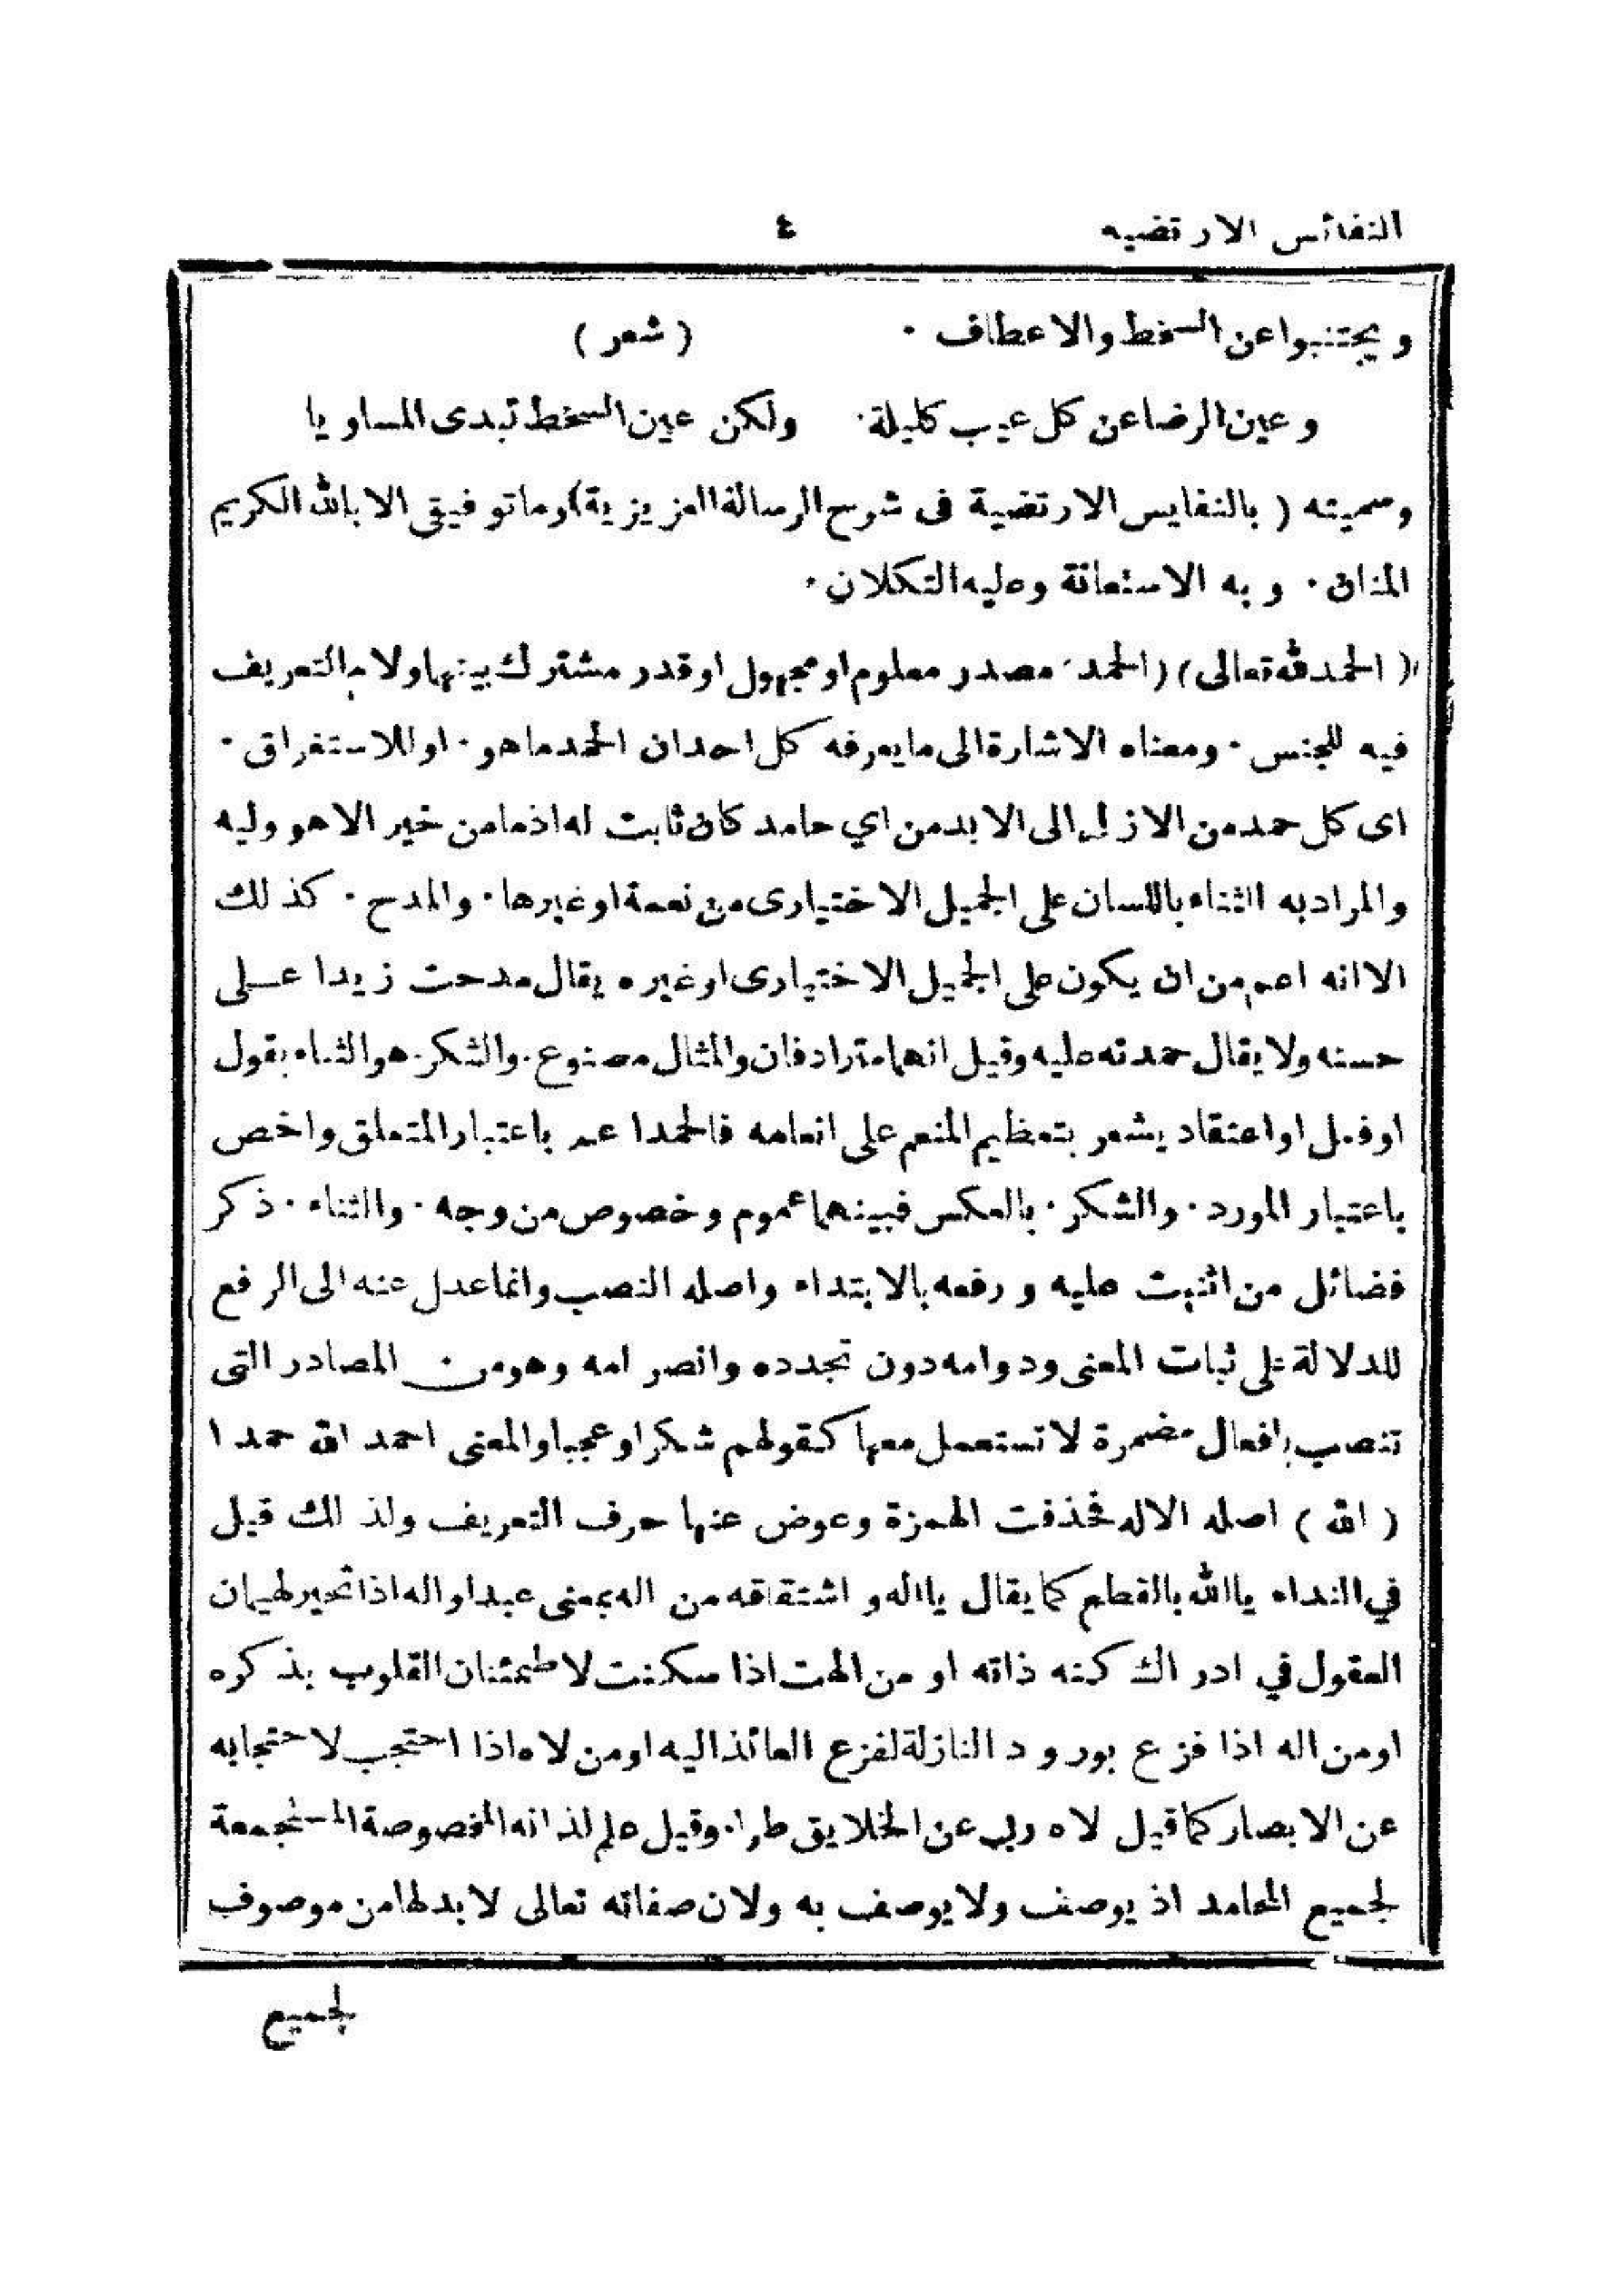 النفائس الارتضيه ٤
و يجتنبوا عن السخط والاعطاف · ( شعر )
وعين الرضا عن كل عيب كليلة · ولكن عين السخط تبدى المساويا
وسميته ( بالنفايس الارتضية فى شرح الرسالة العزيزية) وما توفيقى الا بالله الكريم
المنان · و به الاستعانة وعليه التكلان ·
( الحمد لله تعالى ) ( الحمد · مصدر معلوم او مجهول او قدر مشترك بينهما ولام التعريف
فيه للجنس · ومعناه الاشارة الى ما يعرفه كل احد ان الحمد ما هو · او للاستغراق ·
اى كل حمد من الازل الى الابد من اي حامد كان ثابت له اذ ما من خير الا هو وليه
والمراد به الثناء باللسان على الجميل الاختيارى من نعمة او غيرها · والمدح · كذلك
الا انه اعم من ان يكون على الجميل الاختيارى او غيره يقال مدحت زيدا عـلى
حسنه ولا يقال حمدته عليه وقيل انهما مترادفان والمثال مصنوع · والشكر · هو الثناء بقول
او فعل او اعتقاد يشعر بتعظيم المنعم على انعامه فالحمد اعم باعتبار المتعلق واخص
باعتبار المورد · والشكر · بالعكس فبينهما عموم و خصوص من وجه · والثناء · ذكر
فضائل من اثنيت عليه و رفعه بالابتداء واصله النصب وانما عدل عنه الى الرفع
للدلالة على ثبات المعنى ودوامه دون تجدده وانصرامه وهو من المصادر التى
تنصب بافعال مضمرة لا تستعمل معها كقولهم شكرا وعجبا والمعنى احمد الله حمدا
( الله ) اصله الاله فحذفت الهمزة وعوض عنها حرف التعريف ولذلك قيل
في النداء يا الله بالقطع كما يقال يا اله و اشتقاقه من اله بمعنى عبد او اله اذا تحير لهيمان
العقول في ادراك كنه ذاته او من الهت اذا سكنت لاطمئنان القلوب بذكره
او من اله اذا فزع بورود النازلة لفزع العائذ اليه او من لاه اذا احتجب لاحتجابه
عن الابصار كما قيل لاه ربى عن الخلايق طرا · وقيل علم لذاته المخصوصة المستجمعة
لجميع المحامد اذ يوصف ولا يوصف به ولان صفاته تعالى لا بد لها من موصوف
لجميع